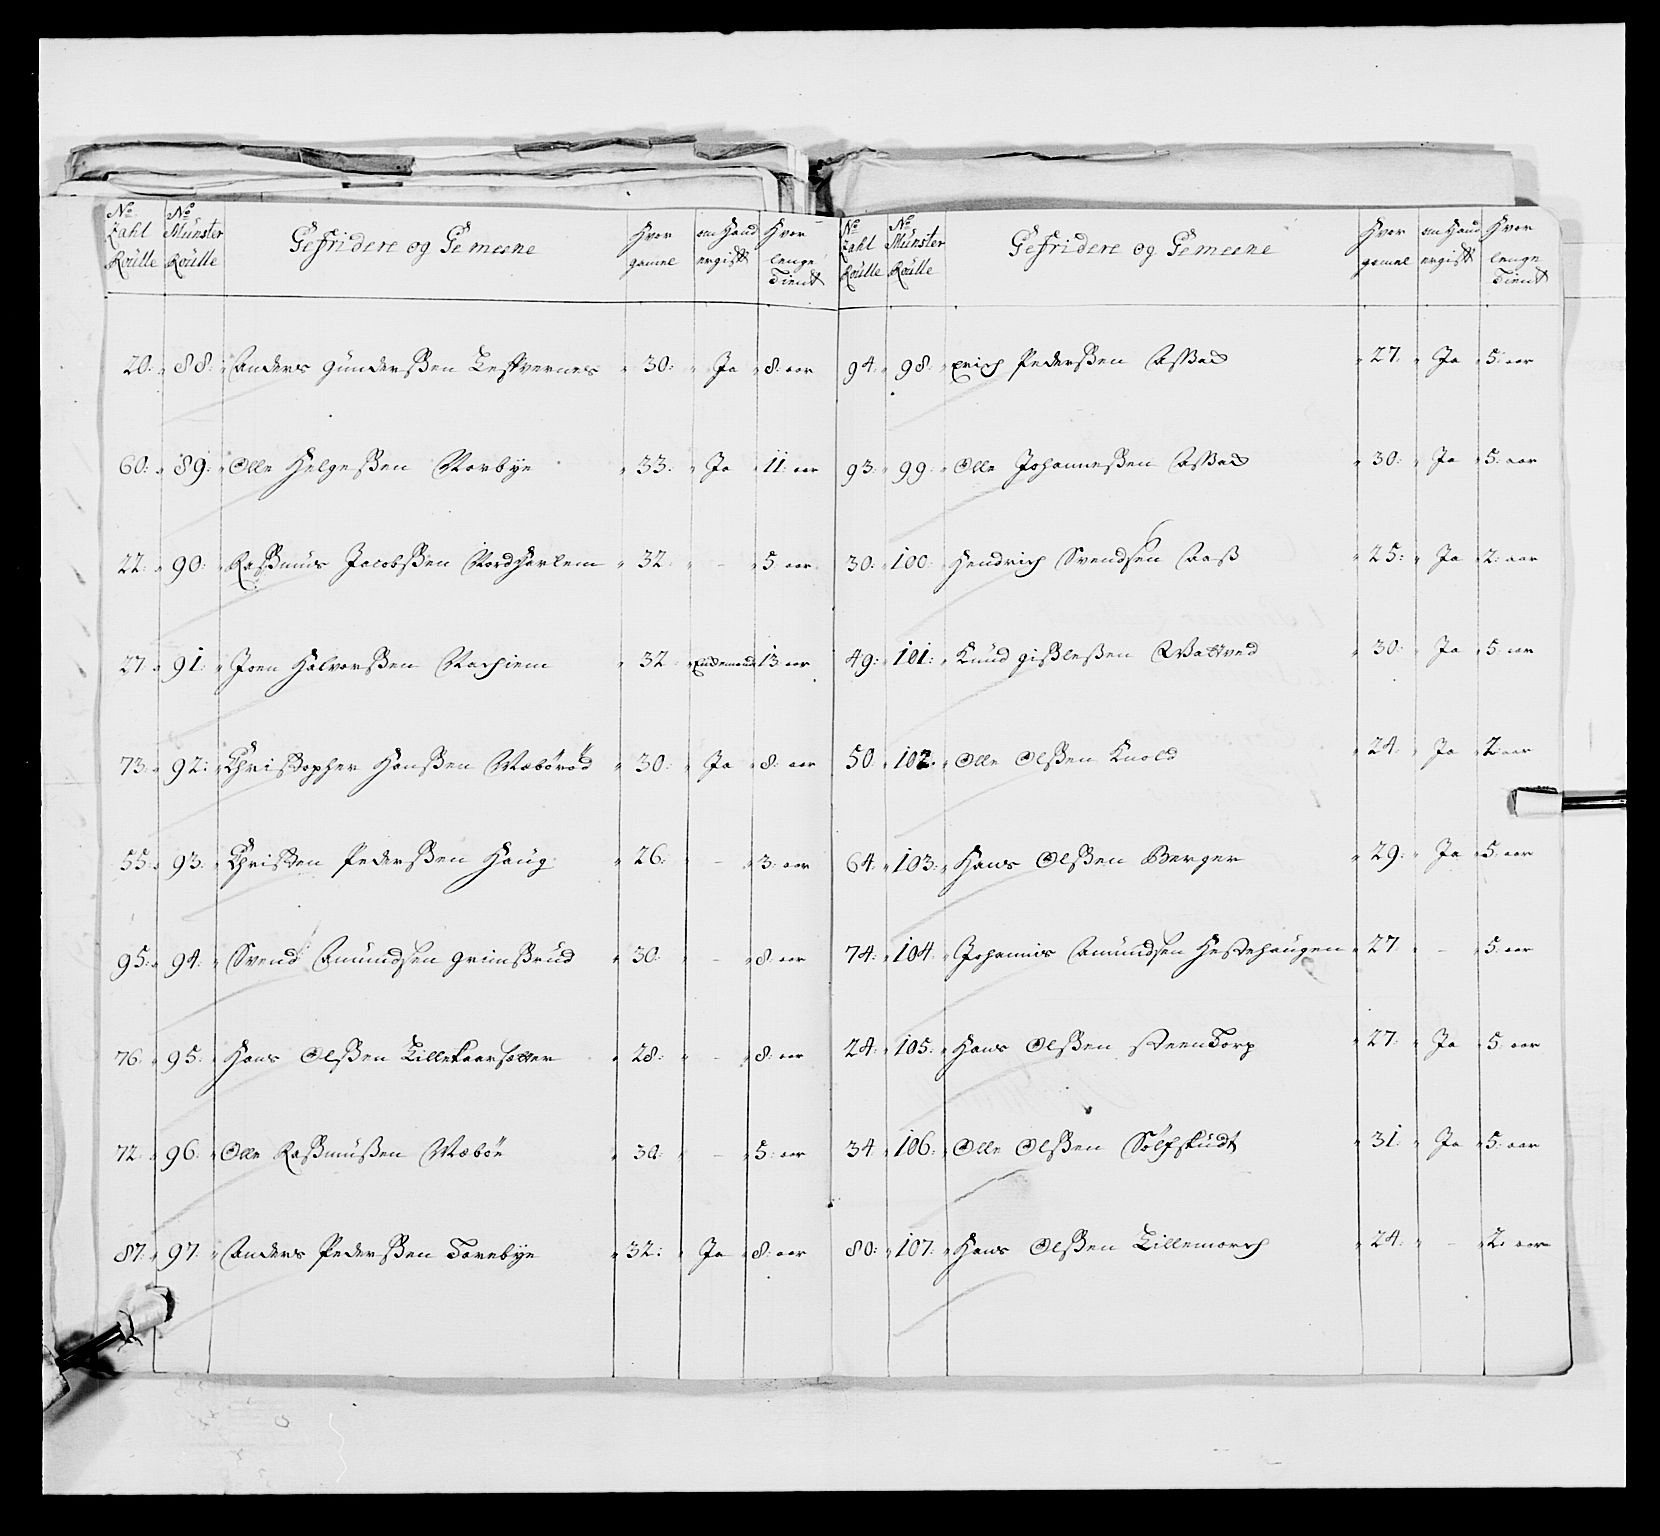 No Zahl Roulle	No Munster Roulle	Gefridere og Gemeene	Hvor gamel	om Hand ergift	Hvor lenge Tient
20:	88:	Anders Gunderßen Testvernes	30:	Ja	8: aar
60:	89:	Olle Helgeßen Norbÿe	33:	Ja	11: aar
22:	90:	Raßmus Jacobßen NordHarlem	32	-	5 aar
27:	91:	Joen Halvorßen	32	Enckemand	13: aar
73:	92:	Christopher Hanßen Wæbörød	30:	Ja	8: aar
55:	93:	Christen Pederßen Haug	26:	-	3: aar
95:	94:	Svend Amundsen Grimsrud	30:	-	8: aar
76:	95:	Hans Olßen	28:	-	8: aar
72:	96:	Olle Raßmußen Wæbön	30:	-	5: aar
87:	97:	Anders Pederßen Tornebÿe	32:	Ja	8: aar
No Zahl Roulle	No Munster Roulle	Gefridere og Gemeene	Hvor gamel	om Hand ergift	Hvor lenge Tient
94:	98:	Erich Pederßen Aßbad	27:	Ja	5: aar
93:	99:	Olle Johanneßen Aßbad	30:	Ja	5: aar
30:	100:	Hendrich Svendsen Aaß	25:	Ja	2: aar
49:	101:	Knud Gißleßen Wattved	30:	Ja	5: aar
50:	102:	Olle Olßen Knold	24:	Ja	2: aar
64:	103:	Hans Olßen Berger	29:	Ja	5: aar
74:	104:	Johannis Amundsen Hestehaugen	27	-	5: aar
24:	105:	Hans Olßen SteenTorp	27:	Ja	5: aar
34	106:	Olle Olßen Sölfskudt	31:	Ja	5: aar
80:	107:	Hans Olßen Lillemorch	24:	-	2: aar